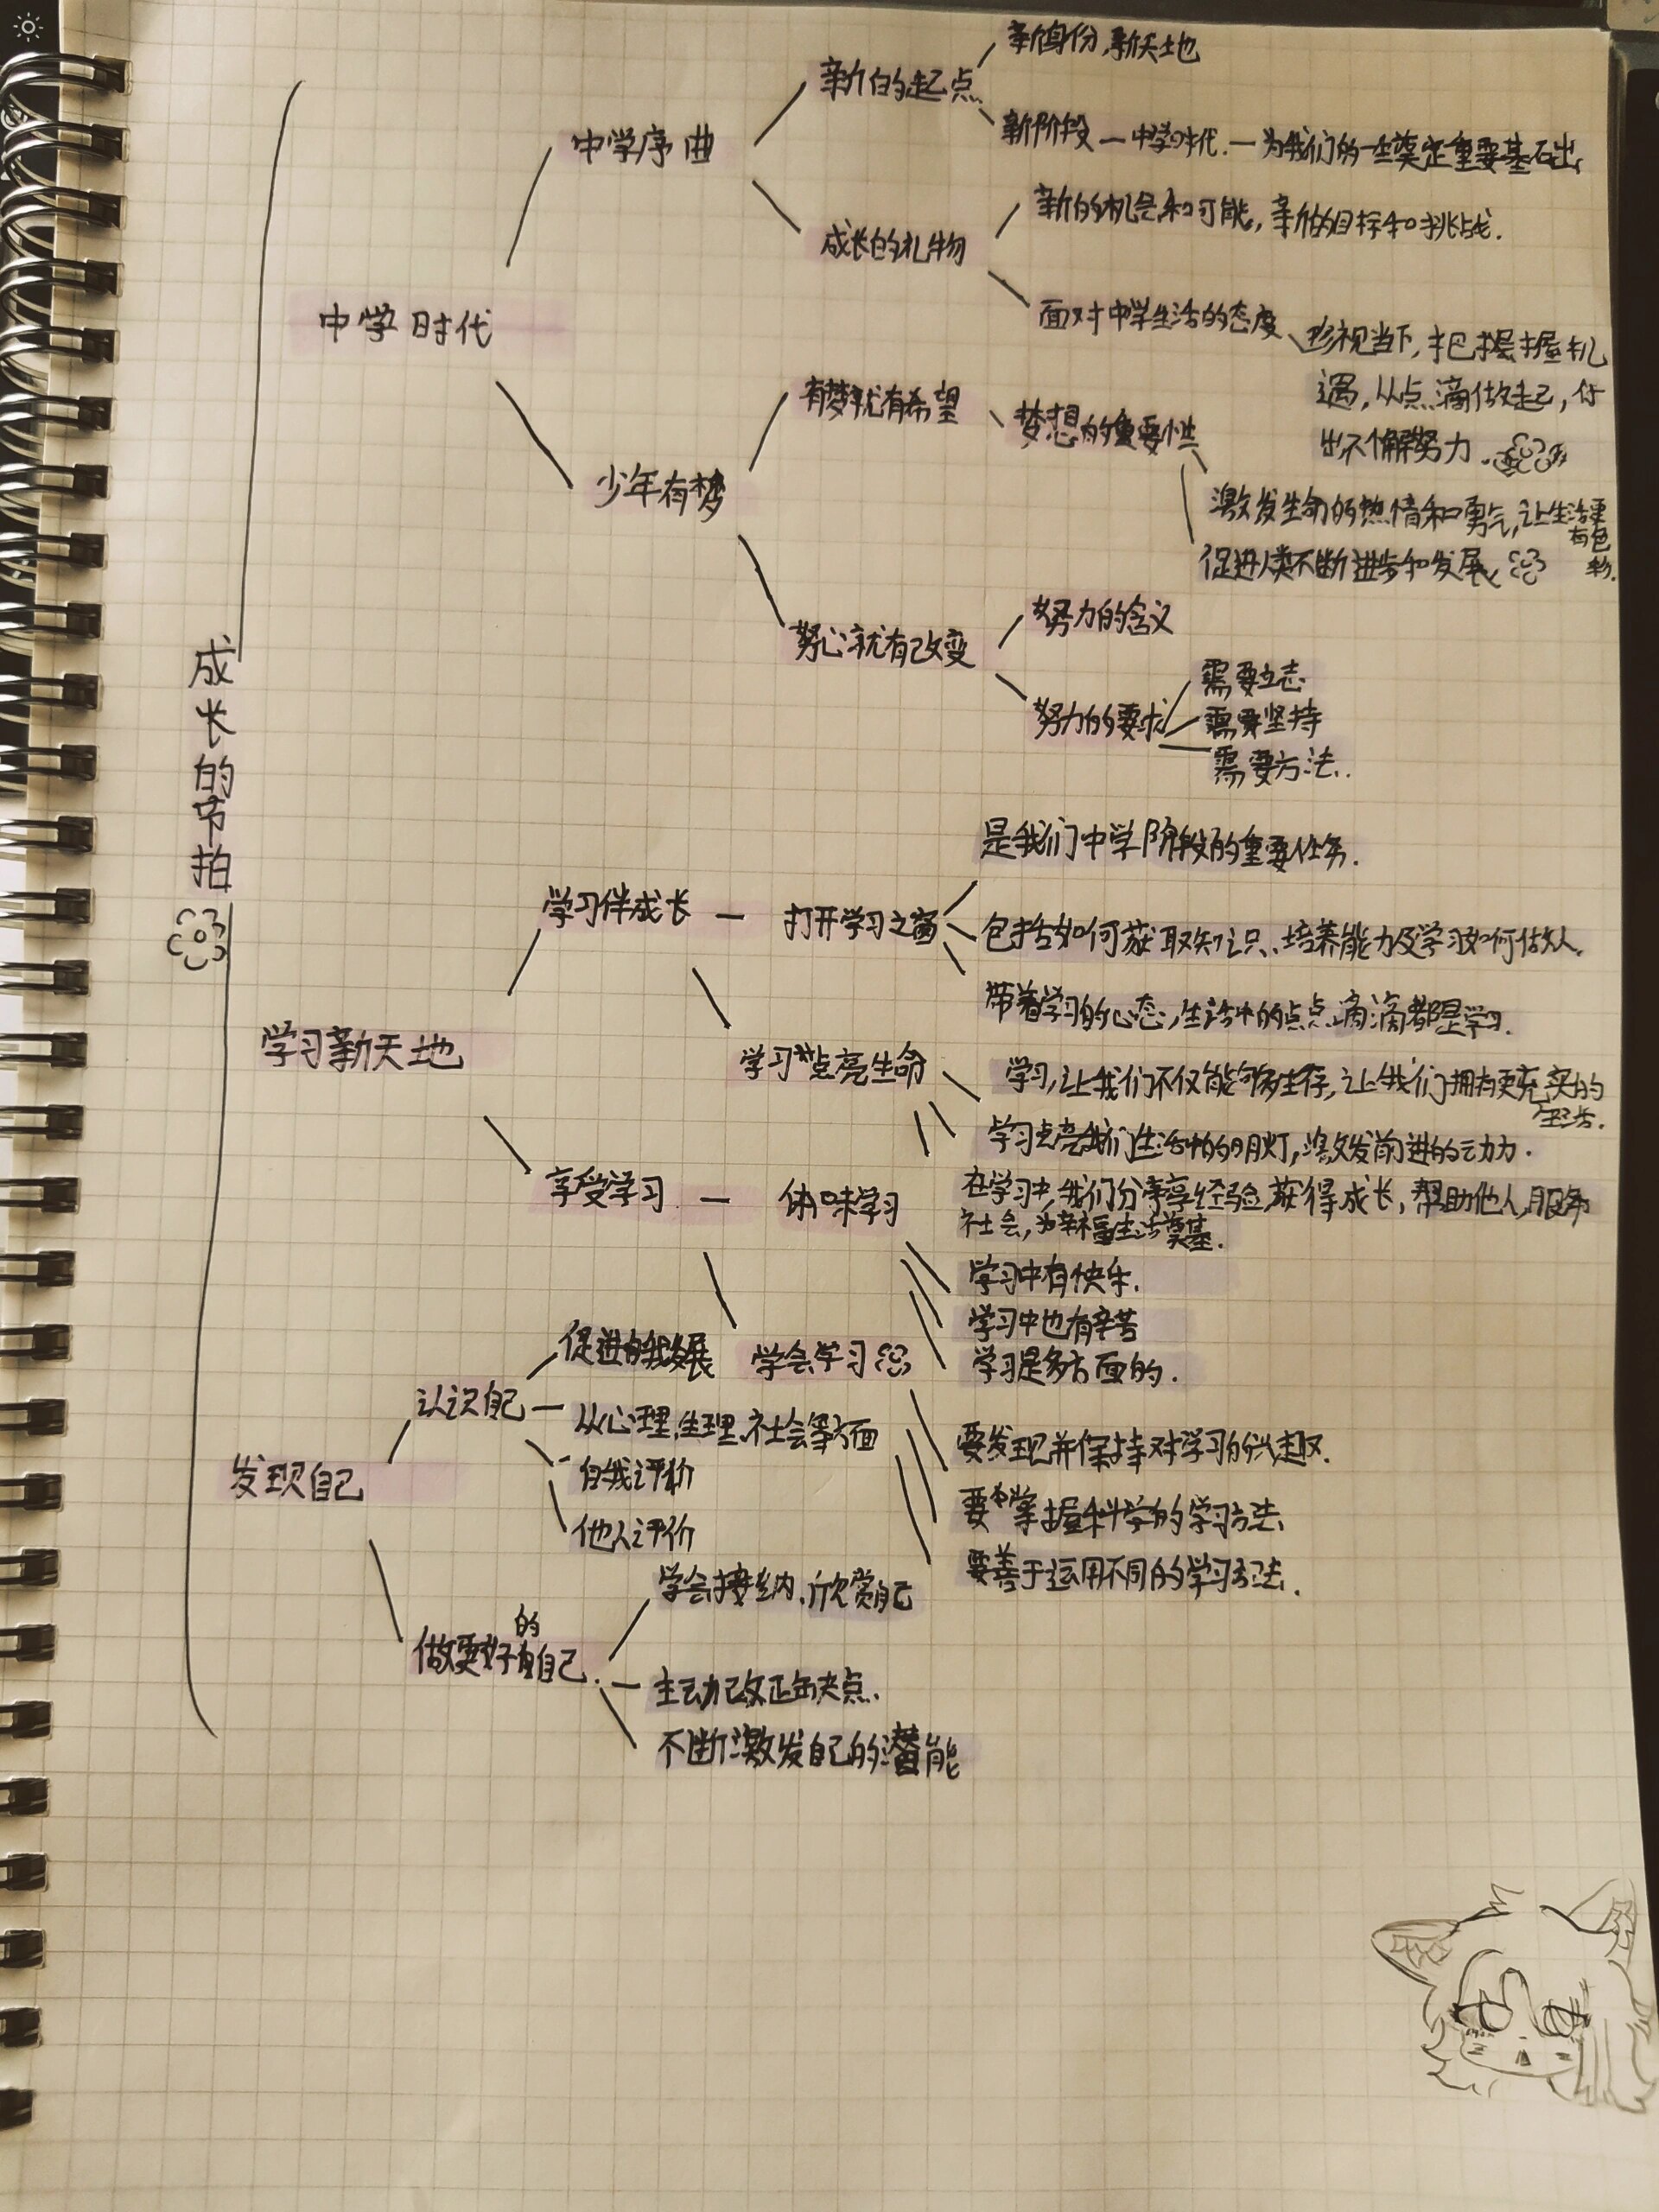 成长的节拍
中学时代
中学序曲
新的起点
新身份,新天地
新阶段—中学时代.—为我们的一生奠定重要基础.
成长的礼物
新的机会和可能,新的目标和挑战.
面对中学生活的态度
珍视当下,把握机
遇,从点滴做起,付
出不懈努力.
少年有梦
有梦就有希望
梦想的重要性
激发生命的热情和勇气,让生活更
有色
彩.
促进人类不断进步和发展
努力就有改变
努力的含义
努力的要求
需要立志
需要坚持
需要方法.
学习新天地
学习伴成长
打开学习之窗
是我们中学阶段的重要任务.
包括如何获取知识、培养能力及学习如何做人.
带着学习的心态,生活中的点点滴滴都是学习.
学习点亮生命
学习,让我们不仅能够生存,让我们拥有更充实的
生活.
学习点亮我们生活中的明灯,激发前进的动力.
在学习中,我们分享经验,获得成长,帮助他人,服务
社会,为幸福生活奠基.
享受学习
体味学习
学习中有快乐.
学习中也有辛苦
学习是多方面的.
学会学习
要发现并保持对学习的兴趣.
要掌握科学的学习方法.
要善于运用不同的学习方法.
发现自己
认识自己
促进自我发展
从心理.生理.社会等方面
自我评价
他人评价
做更好的自己.
学会接纳.欣赏自己
主动改正缺点.
不断激发自己的潜能